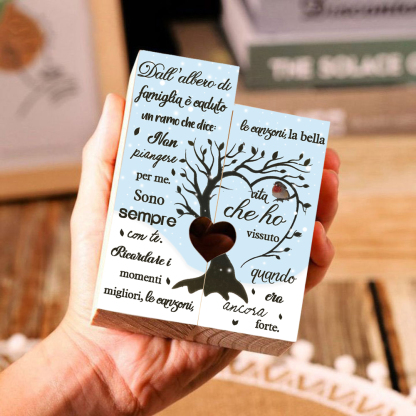 Dall'albero di
famiglia è caduto
un ramo che dice:
Non
piangere
per me.
Sono
sempre
con te.
Ricordare i
momenti
migliori, le canzoni,
le canzoni, la bella
vita
che ho
vissuto
quando
ero
ancora
forte.
THE SOLACE OF